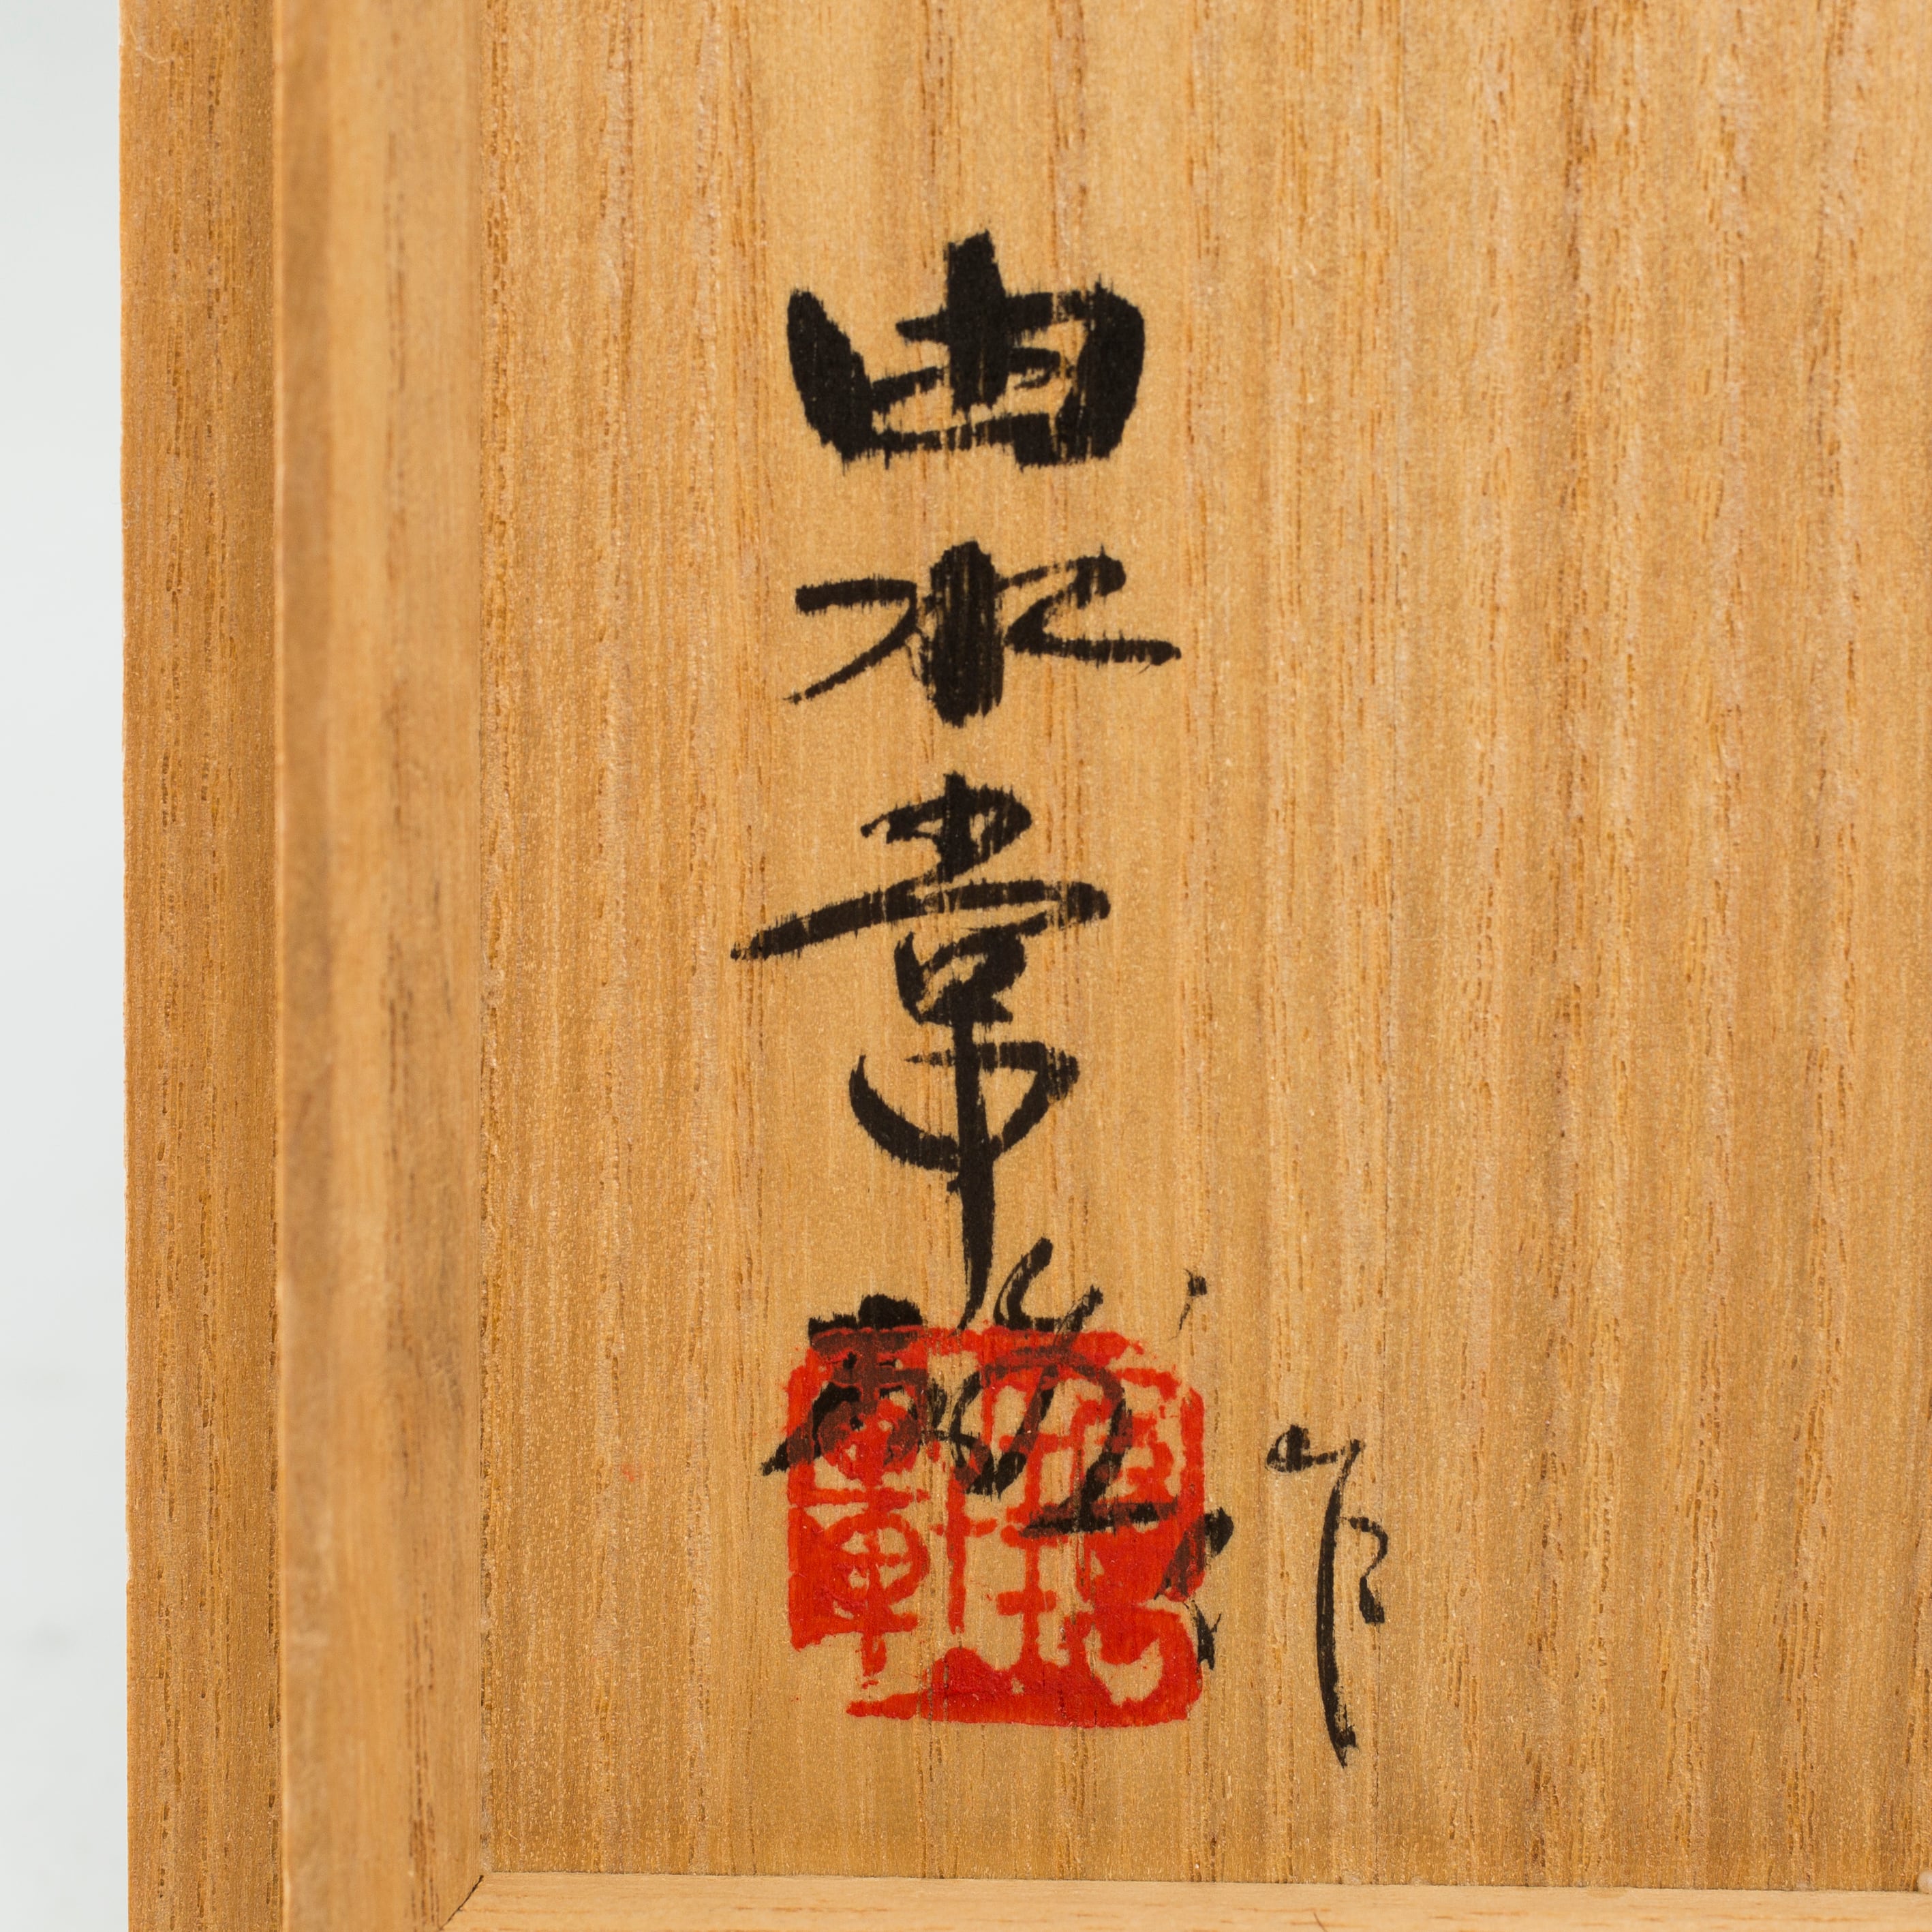 由水常雄作